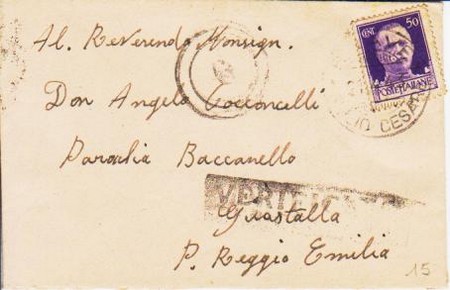 Al. Reverendo Monsign.
Don Angelo Cocconcelli
Parochia Baccanello
Guastalla
P. Reggio Emilia
CENT 50
POSTE ITALIANE
15